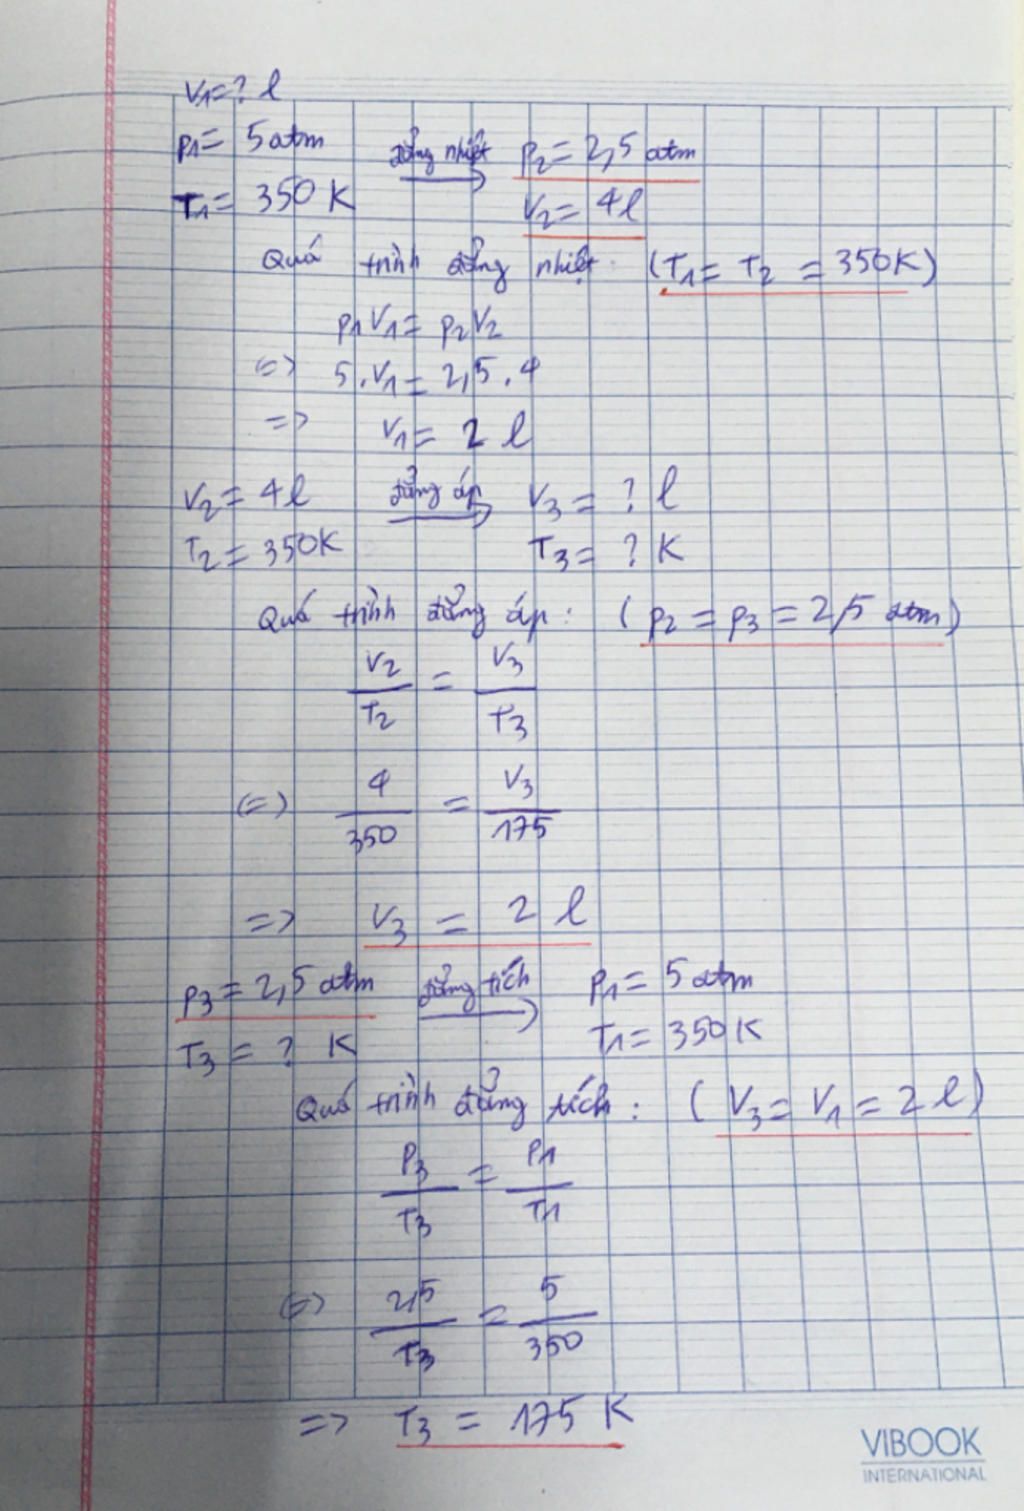 V1 = ? l
P1 = 5 atm đẳng nhiệt P2 = 2,5 atm
T1 = 350 K → V2 = 4 l
Quá trình đẳng nhiệt: (T1 = T2 = 350K)
P1V1 = P2V2
(=) 5.V1 = 2,5.4
=> V1 = 2 l
V2 = 4 l đẳng áp → V3 = ? l
T2 = 350K T3 = ? K
Quá trình đẳng áp: (P2 = P3 = 2,5 atm)
V2/T2 = V3/T3
(=) 4/350 = V3/175
=> V3 = 2 l
P3 = 2,5 atm đẳng tích → P1 = 5 atm
T3 = ? K T1 = 350 K
Quá trình đẳng tích: (V3 = V1 = 2 l)
P3/T3 = P1/T1
(=) 2,5/T3 = 5/350
=> T3 = 175 K
VIBOOK
INTERNATIONAL